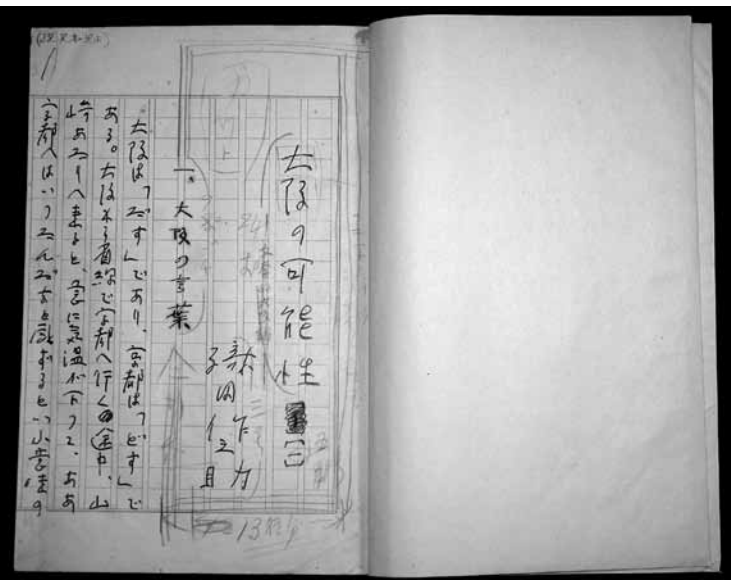 大阪の可能性
織田作之助
一、大阪の言葉
大阪は「だす」であり、京都は「どす」で
ある。大阪から省線で京都へ行く途中、山
崎あたりへ来ると、急に気温が下つて、ああ
京都へはいつたんだなと感ずるといふ意味の